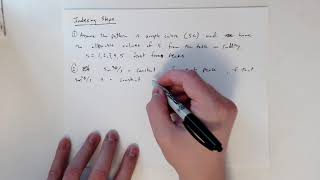 Indexing Steps
① Assume the pattern is simple cubic (SC) and have
the allowable values of S from the table → ending
S = 1, 2, 3, 4, 5 first five peaks
② sin²θ/s = constant peaks, if that
sin²θ/s is constant